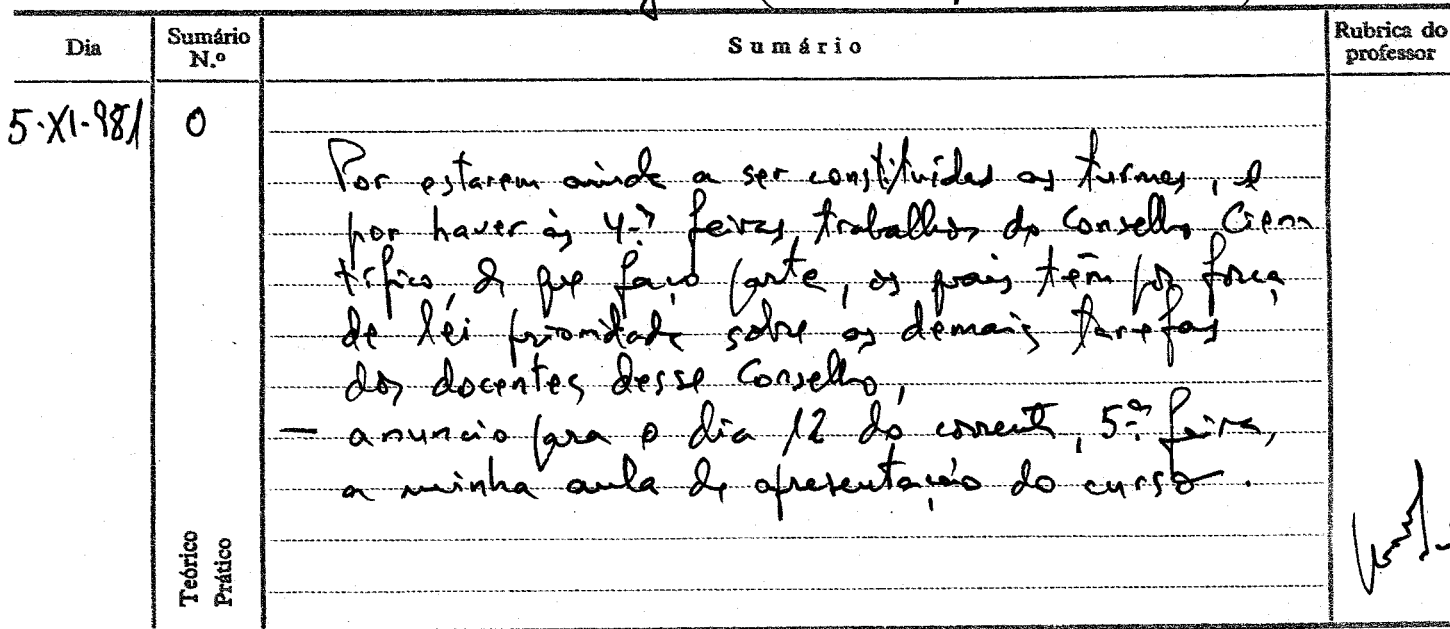 Dia
Sumário N.º
Sumário
Rubrica do professor
5-XI-981
0
Por estarem ainda a ser constituídas as turmas, e
por haver às 4.ªs feiras trabalhos do Conselho Cien
tífico, de que faço parte, os quais têm por força
de lei prioridade sobre as demais tarefas
dos docentes desse Conselho,
— anuncio para o dia 12 do corrente, 5.ª feira,
a minha aula de apresentação do curso.
Teórico
Prático